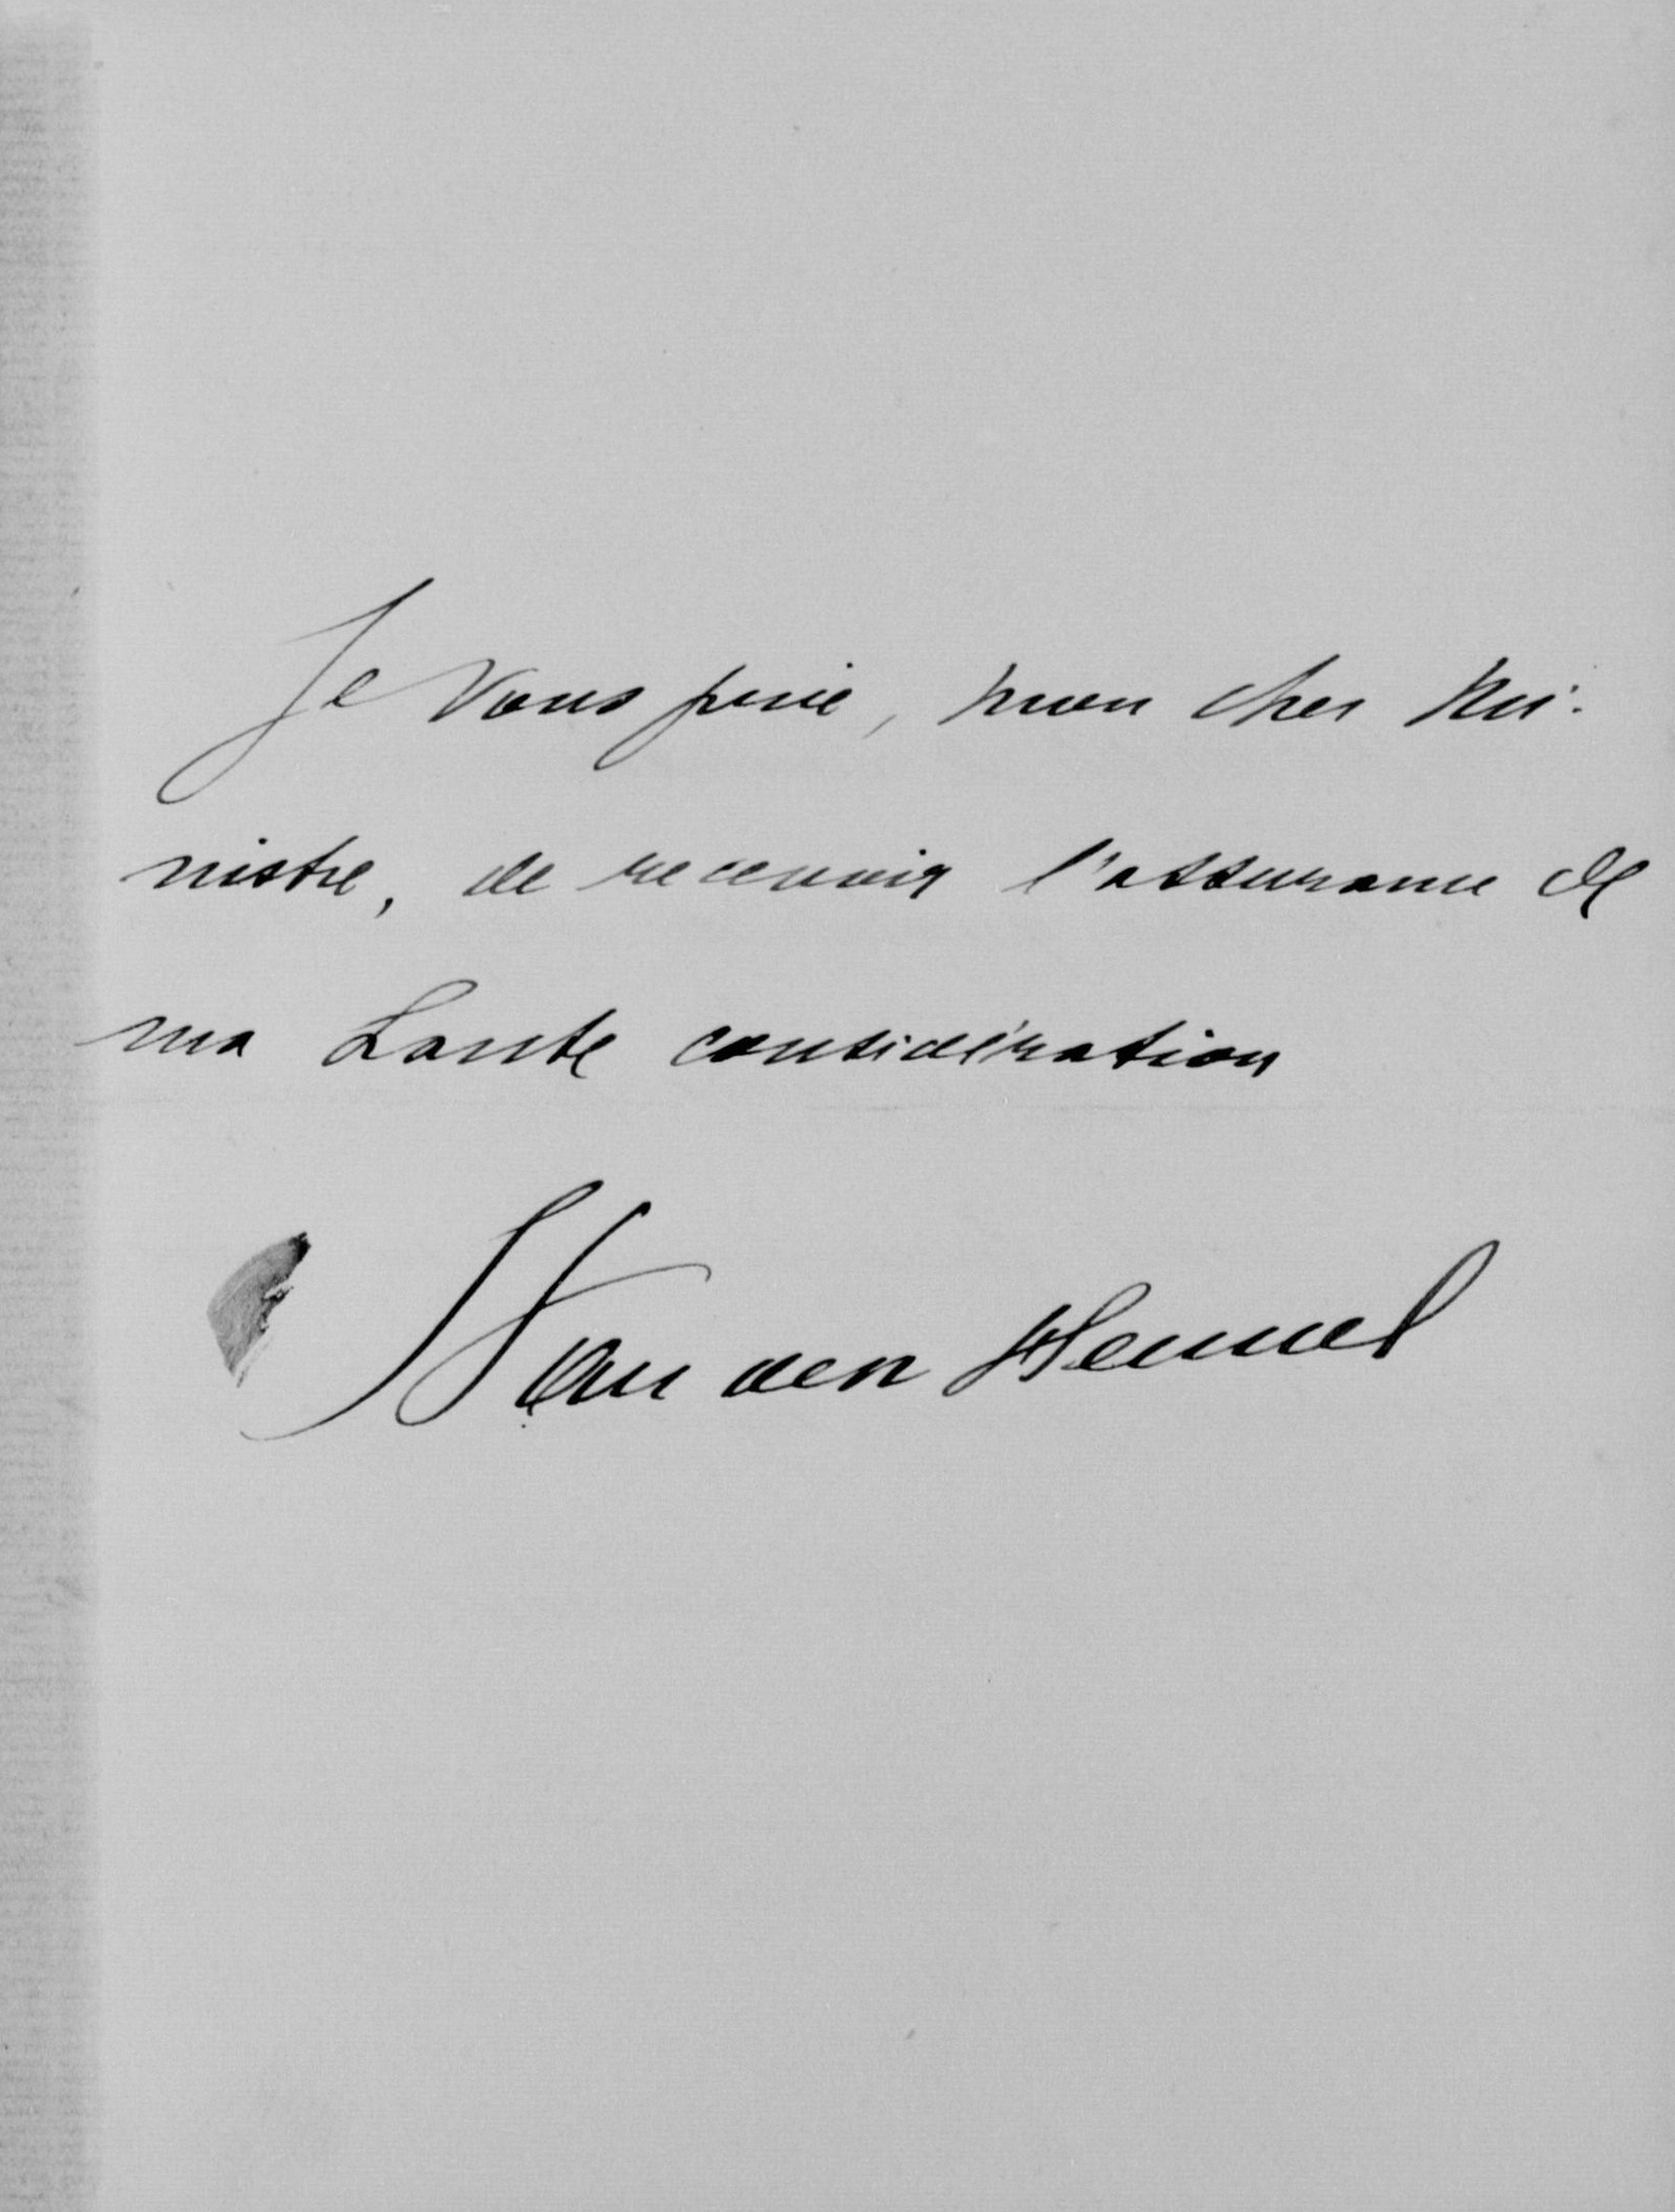 Je vous prie, mon cher Mi-
nistre, de recevoir l'assurance de
ma haute considération
J Van den Heuvel